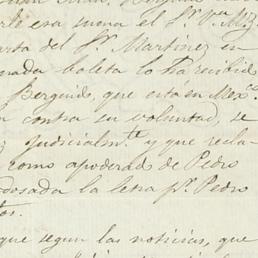 esta suma el Sr. Vte. Mig.
arta del Sr. Martinez en
nada boleta lo ha recibido
Berguido, que está en Mexco.
n contra su voluntad, se
z judicialmte. y que recla
como apoderado de Pedro
dosada la letra pr. Pedro
tor.
que segun las noticias, que